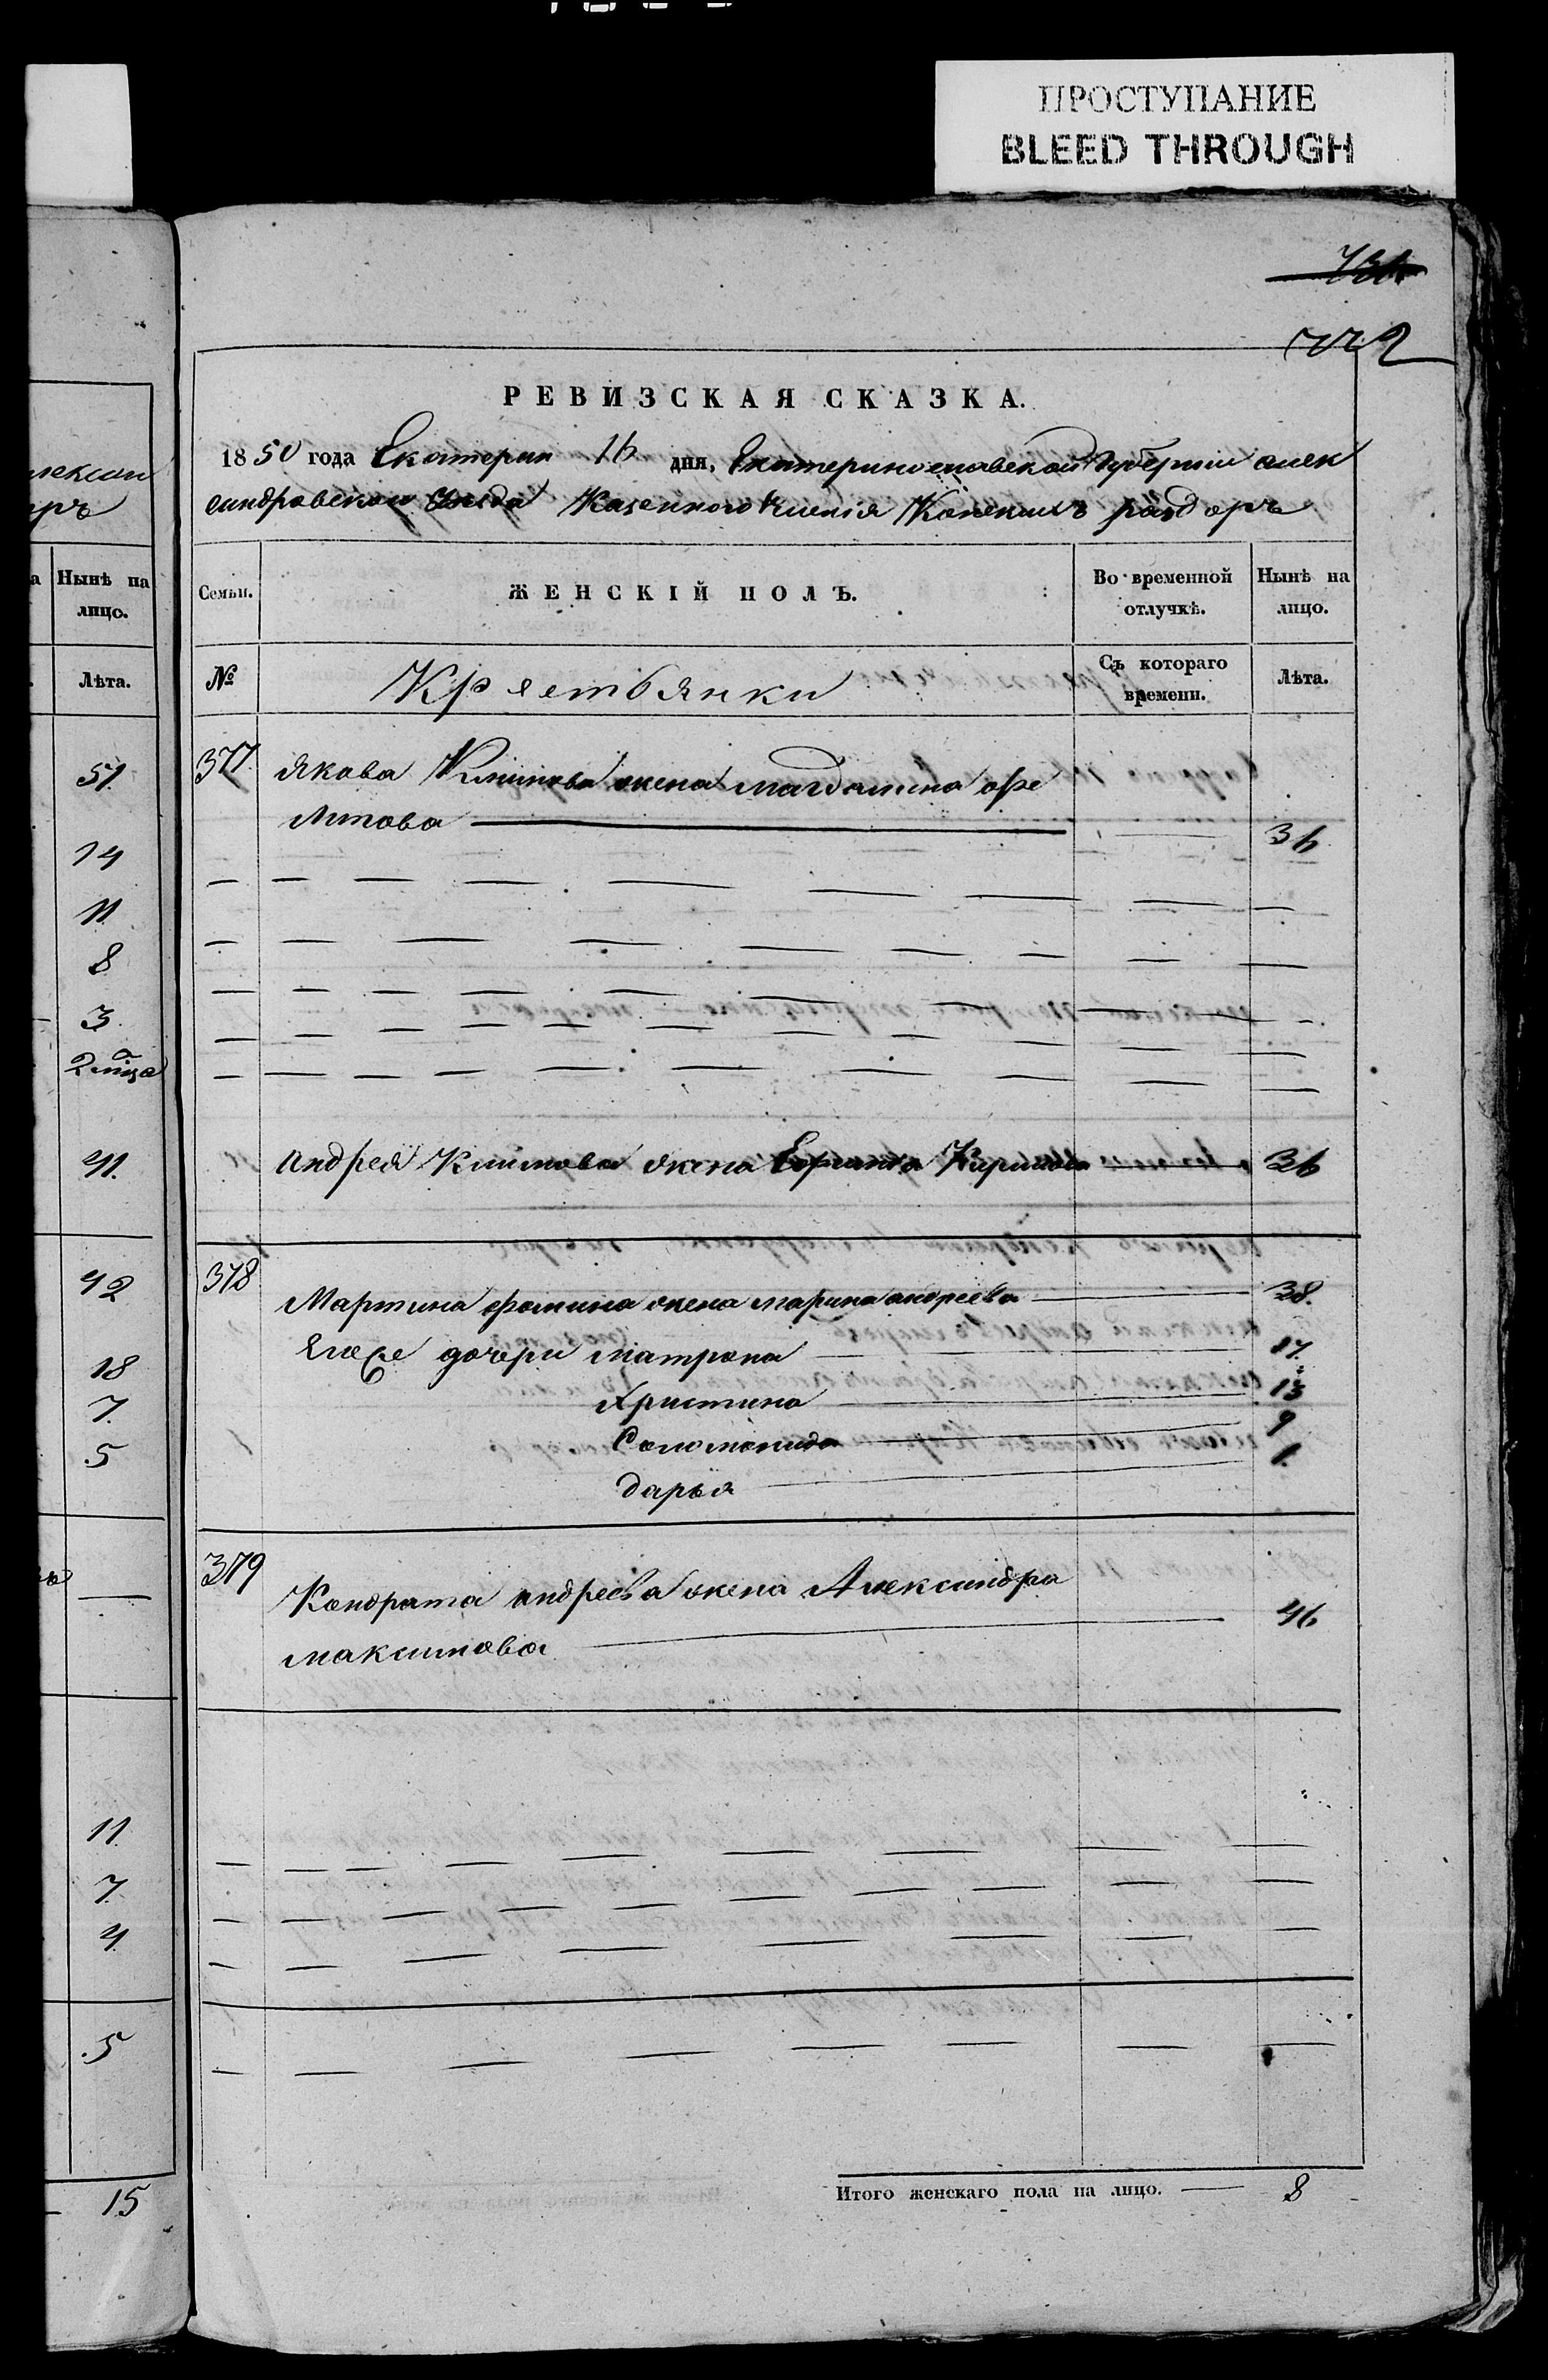 ПРОСТУПАНИЕ
BLEED THROUGH
772
РЕВИЗСКАЯ СКАЗКА.
1850 года Екатерин 16 дня, Екатеринославской Губерніи алек
сандровской уезда Казенного имения Конских раздоръ
Нынѣ на лицо.
Лѣта.
51
14
11
8
3
2 мца
41
42
18
7
5
11
7
4
5
15
Семьи. ЖЕНСКІЙ ПОЛЪ. Во временной отлучкѣ. Нынѣ на лицо.
№ Крестьянки Съ котораго времени. Лѣта.
377 Якова Климова жена магдалина офе
литова 36
андрея Климова жена Кирилова 36
378 Мартина фомина жена марина андреева 38.
Его же дочери матрона 17.
Христина 13
Соломонида 9
дарья 1.
379 Кондрата андреева жена Александра
максимова 46
Итого женскаго пола на лицо. 8